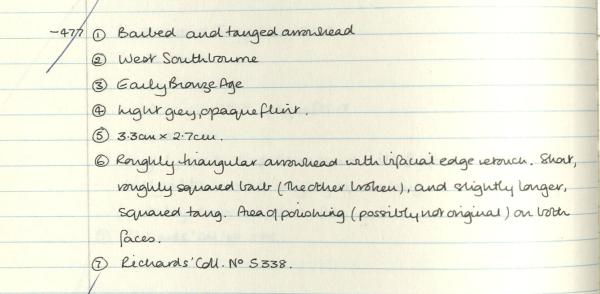 -477 ① Barbed and tanged arrowhead
② West Southbourne
③ Early Bronze Age
④ Light grey, opaque flint.
⑤ 3.3cm x 2.7cm.
⑥ Roughly triangular arrowhead with bifacial edge retouch. Short,
roughly squared barb (The other broken), and slightly longer,
squared tang. Area of polishing (possibly not original) on both
faces.
⑦ Richards' Coll. No S338.